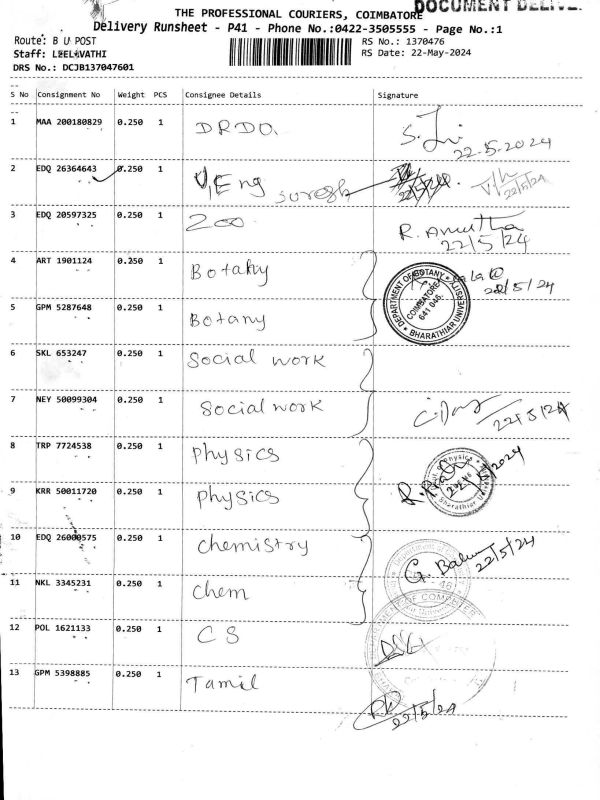 DOCUMENT DELIVE
THE PROFESSIONAL COURIERS, COIMBATORE
Delivery Runsheet - P41 - Phone No.:0422-3505555 - Page No.:1
Route: B U POST
RS No.: 1370476
Staff: LEELAVATHI
RS Date: 22-May-2024
DRS No.: DCJB137047601
S No Consignment No Weight PCS Consignee Details Signature
1 MAA 200180829 0.250 1 DRDO.
22.5.2024
2 EDQ 26364643 0.250 1 Eng Suresh
22/5/24
3 EDQ 20597325 0.250 1 Zoo
R. Amutha
22/5/24
4 ART 1901124 0.250 1 Botany
22/5/24
DEPARTMENT OF BOTANY
COIMBATORE
641 046.
BHARATHIAR UNIVERSITY
5 GPM 5287648 0.250 1 Botany
6 SKL 653247 0.250 1 Social work
7 NEY 50099304 0.250 1 Social work
22/5/24
8 TRP 7724538 0.250 1 Physics
9 KRR 50011720 0.250 1 Physics
10 EDQ 26000575 0.250 1 Chemistry
22/5/24
11 NKL 3345231 0.250 1 Chem
12 POL 1621133 0.250 1 CS
13 GPM 5398885 0.250 1 Tamil
22/5/24